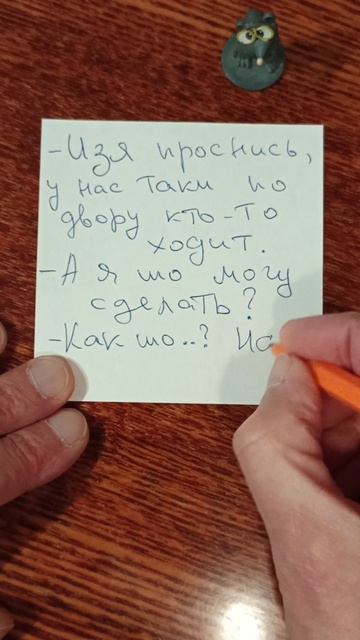 -Изя проснись,
у нас таки по
двору кто-то
ходит.
-А я шо могу
сделать?
-Как шо..?